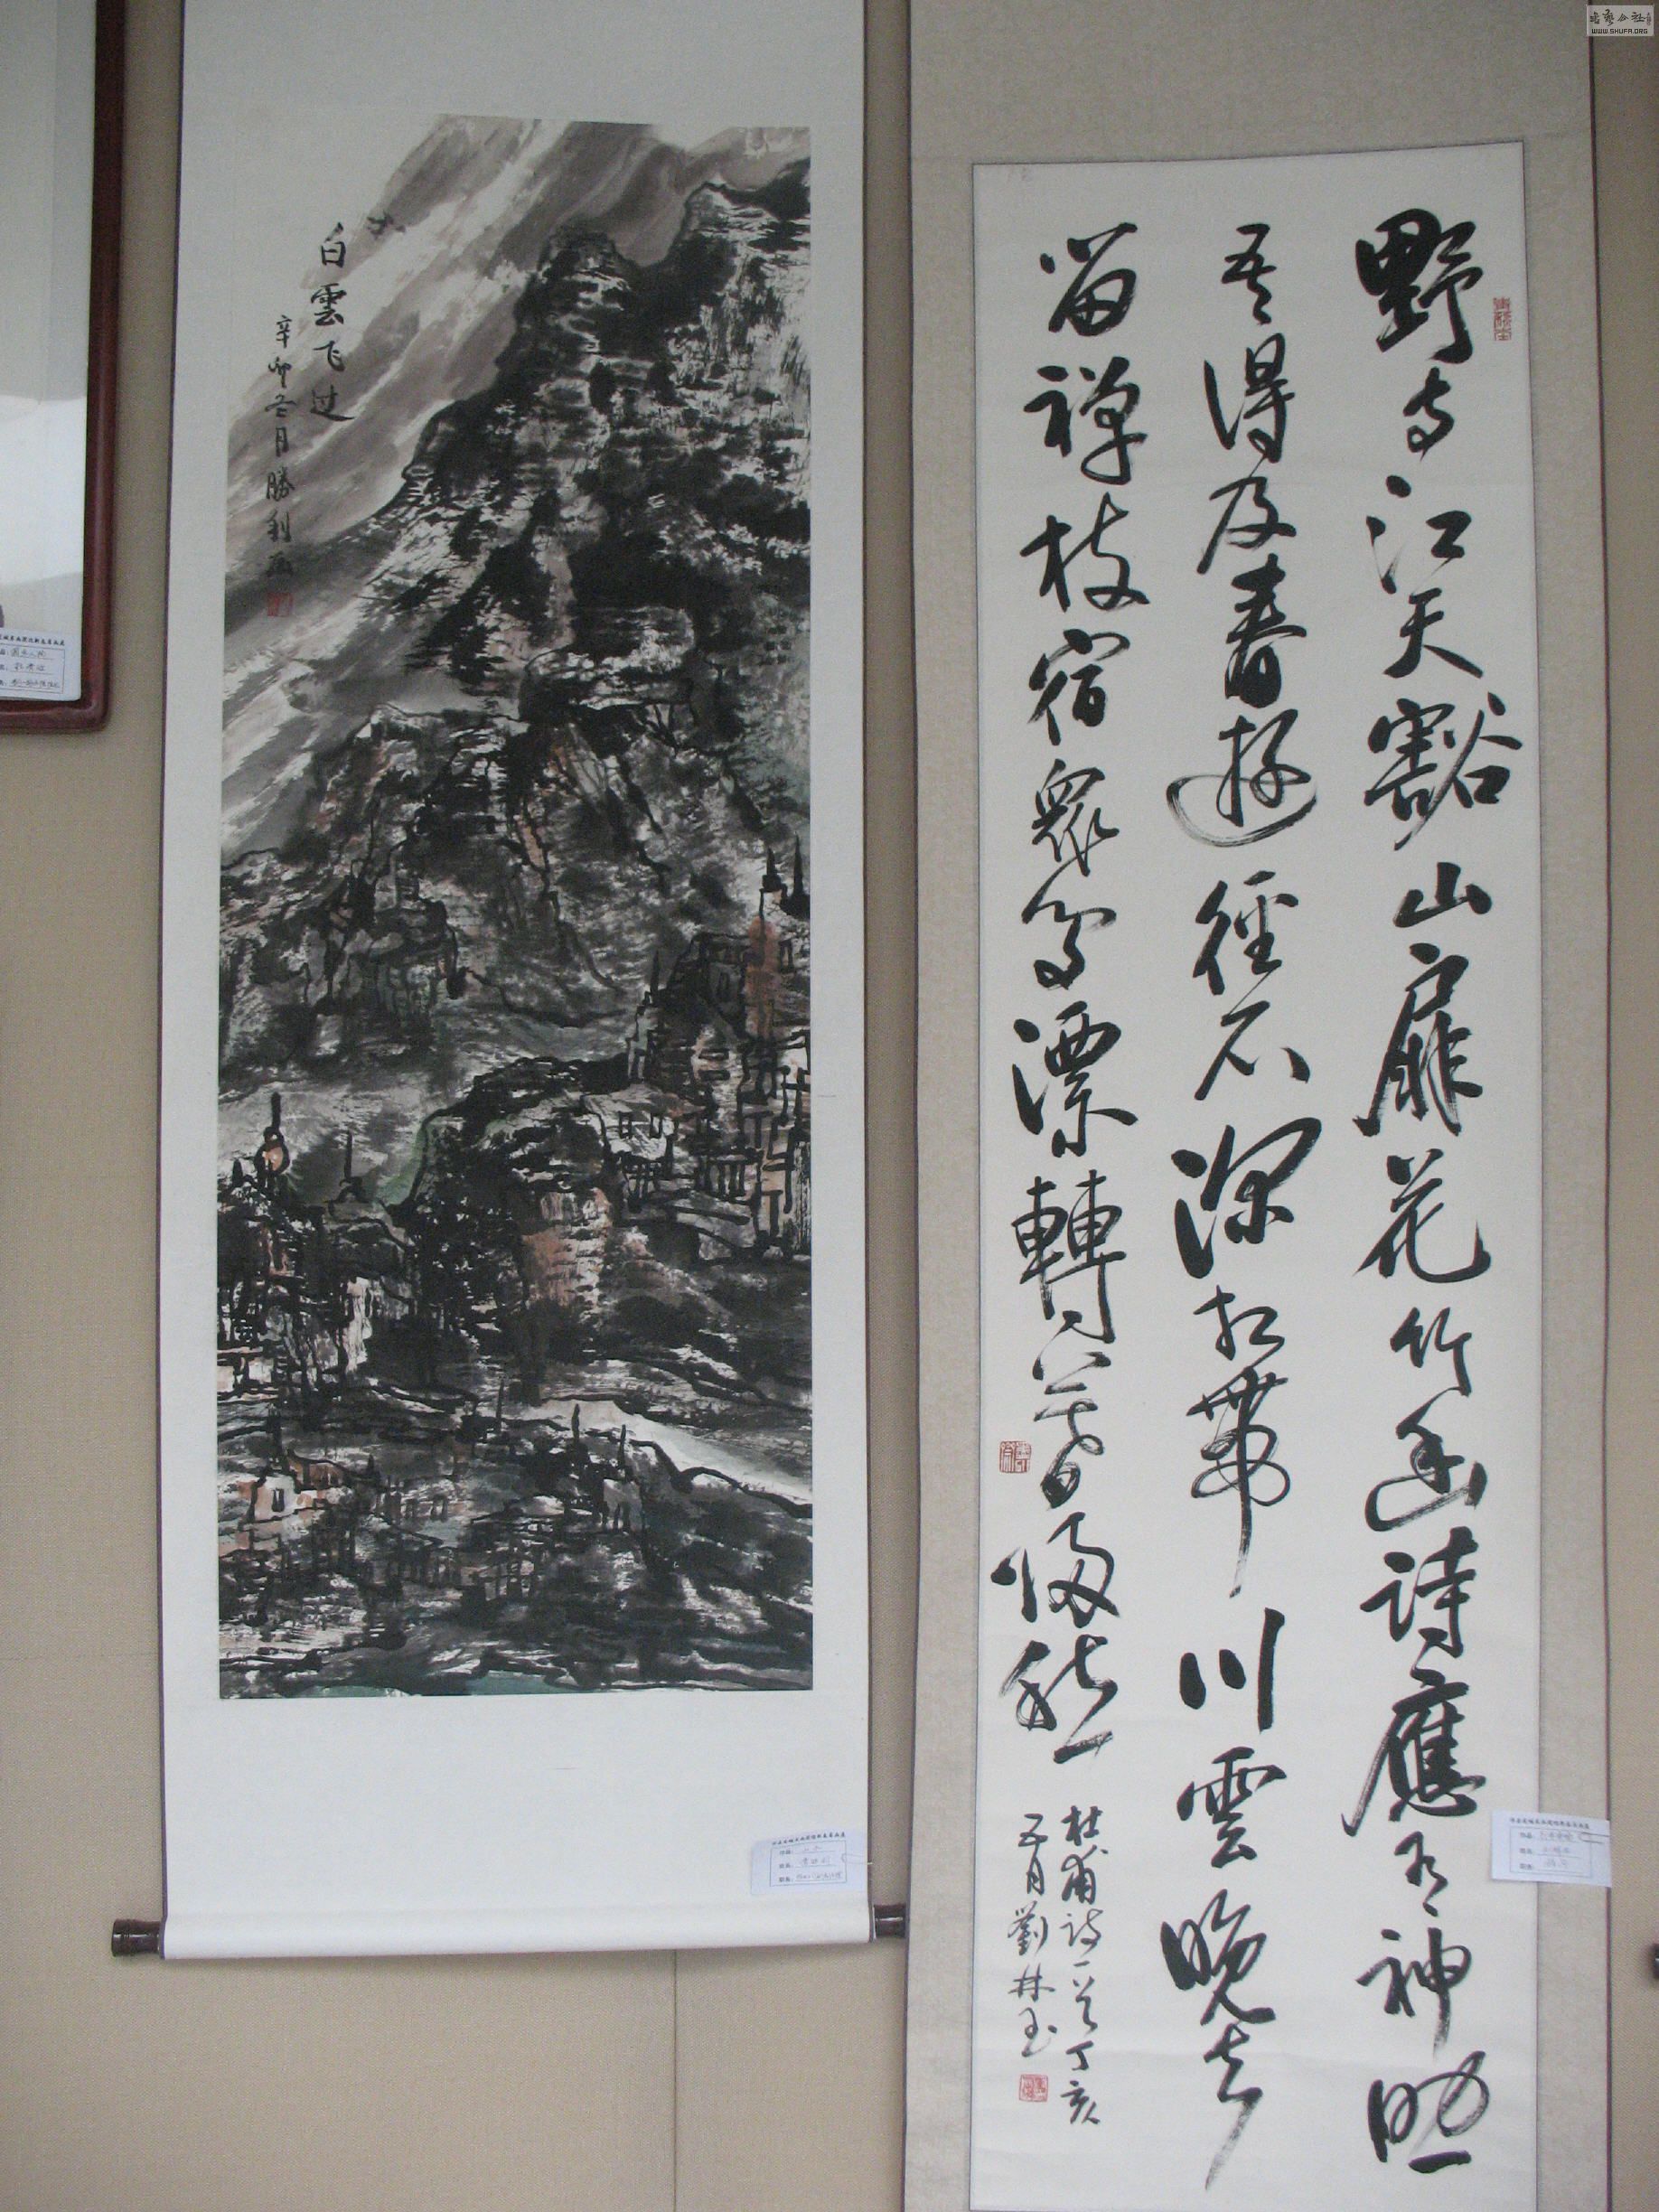 野寺江天豁山扉花竹幽詩應有神助
吾得及春遊徑石深相帶川雲晚去
留禅枝宿眾鳥漂轉暮歸愁
杜甫詩一首丁亥
五月劉林玉
白雲飞过
辛卯冬月勝利画
WWW.SHUFA.ORG